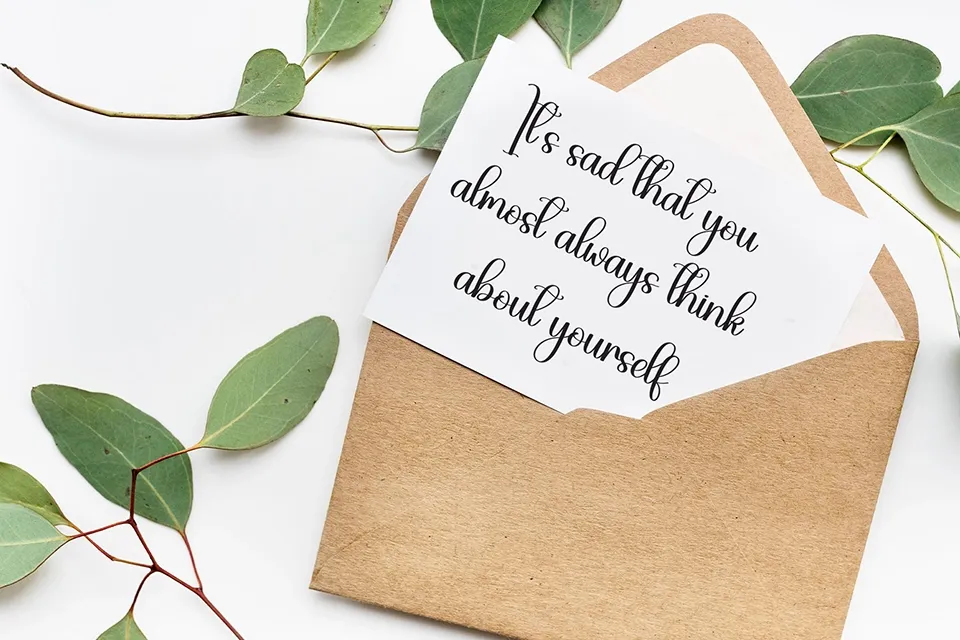 It's sad that you
almost always think
about yourself